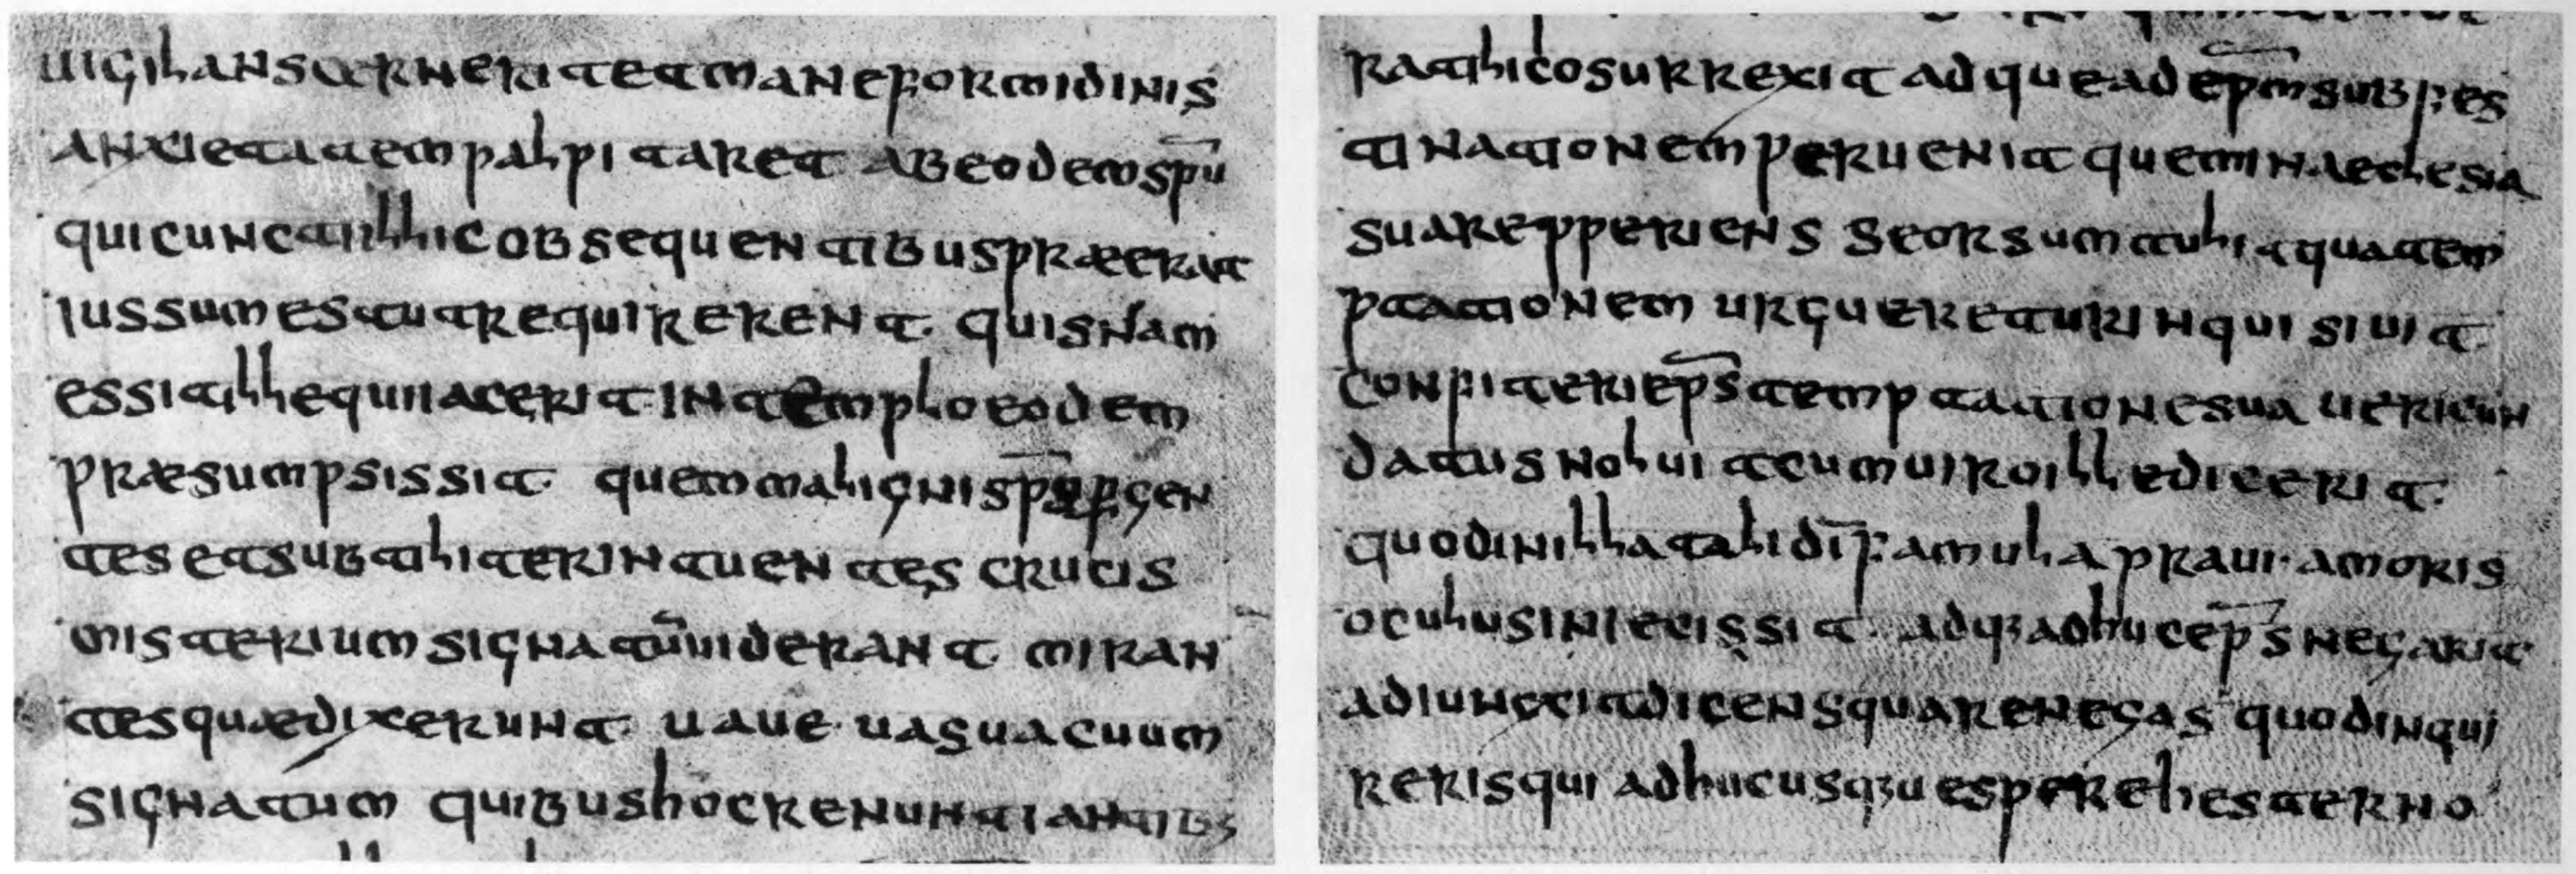 uigilans cernerit et mane formidinis
anxietatem palpitaret ab eodem sp̄u
qui cuncti illic obsequentibus præerat
iussum est ut requirerent. quisnam
essit ille qui iacerit in templo eodem
præsumpsissit quem maligni sp̄s pergen
tes et subtiliter intuentes crucis
misterium signatū uiderant. miran
tes quæ dixerunt. uaue uas uacuum
signatum quibus hoc renuntiantibs
ratilico surrexit adque ad ep̄m sub fes
tinationem peruenit quem in aeclesia
sua repperiens seorsum tulit qua tem
ptationem urgueretur inquisiuit.
confiteri ep̄s temptatione sua uericun
datus noluit cum uiro ille dicerit.
quod in illa tali dī famula praui amoris
oculus iniecissit. adq; adhuc ep̄s negarit
adiunctit dicens quare negas quod inqui
reris qui adhuc usq; uespere hesterno